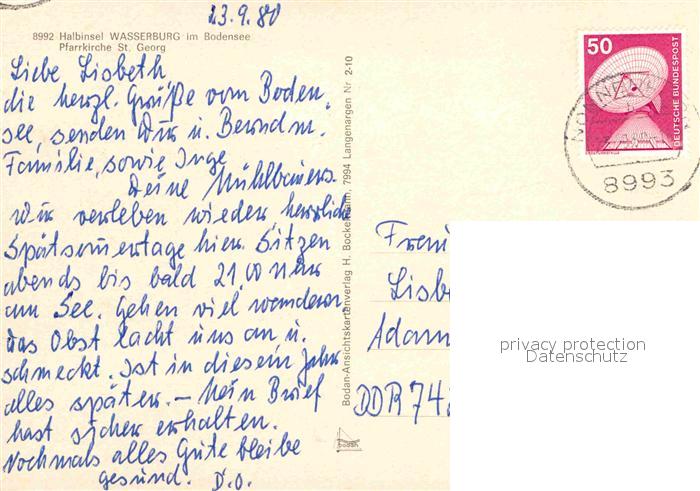 23.9.80
8992 Halbinsel WASSERBURG im Bodensee
Pfarrkirche St. Georg
Liebe Lisbeth
die herzl. Grüße vom Boden-
see, senden Wir u. Bernd m.
Familie, sowie Inge
Deine Mühlbauers.
Wir verleben wieder herrlich
Spätsomertage hier. Sitzen
abends bis bald 21,00 Uhr
am See. Gehen viel wandern
das Obst lacht uns an, u.
schmeckt. Ist in diesem Jahr
alles später. – Mein Brief
hast sicher erhalten.
Nochmals alles Gute bleibe
gesund. D.O.
Bodan-Ansichtskartenverlag H. Bockelmann, 7994 Langenargen Nr 2-10
bodan
50
DEUTSCHE BUNDESPOST
8993
Frau
Lisb
Adam
DDR 74
privacy protection
Datenschutz